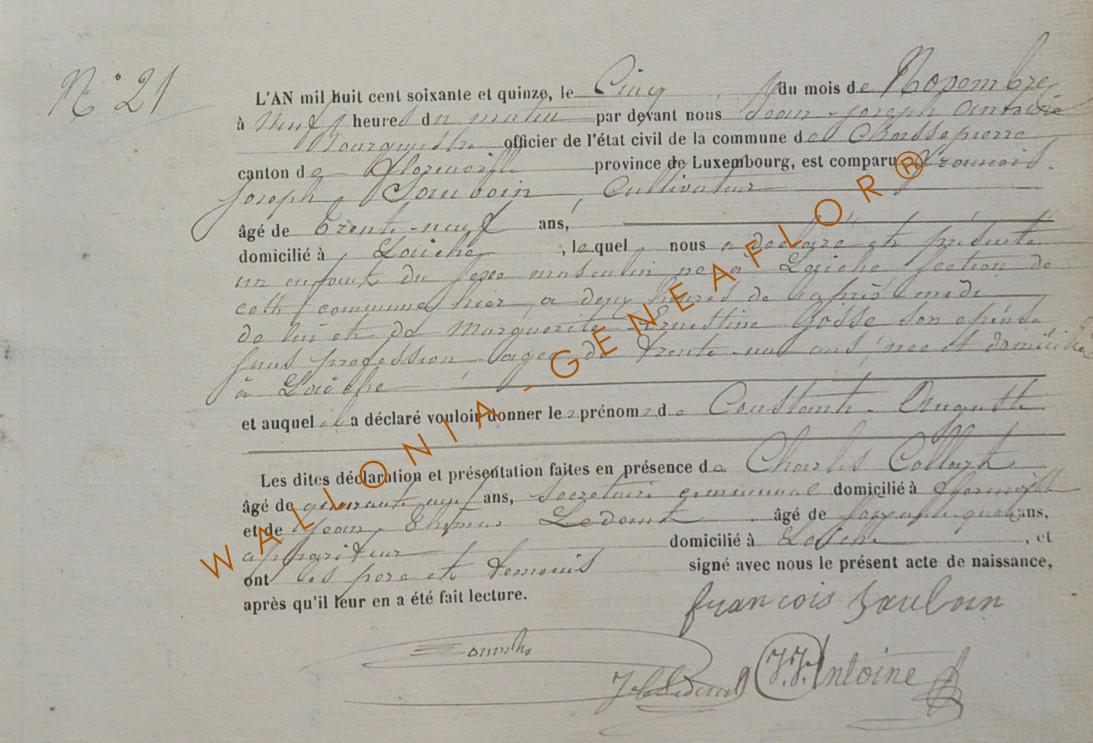 N° 21
L'AN mil huit cent soixante et quinze, le Cinq du mois de Novembre
à Neuf heures du matin par devant nous Jean Joseph Antoine
Bourgmestre officier de l'état civil de la commune de Chassepierre
canton de Florenville province de Luxembourg, est comparu François
Joseph Sauboin, Cultivateur
âgé de trente-neuf ans,
domicilié à Laiche, lequel nous a déclaré et présenté
un enfant du sexe masculin né à Laiche section de
cette commune hier, à deux heures de l'après-midi
de lui et de Marguerite Ernestine Gosse son épouse
sans profession agée de trente-un ans née et domiciliée
à Laiche
et auquel il a déclaré vouloir donner les prénoms de Constant-Auguste
Les dites déclaration et présentation faites en présence de Charles Collart
âgé de quarante neuf ans, secrétaire communal domicilié à Florenville
et de Jean Ledent âgé de soixante quatre ans,
appariteur domicilié à Laiche, et
ont les père et témoins signé avec nous le présent acte de naissance,
après qu'il leur en a été fait lecture.
françois Sauboin
J. J. Antoine
WALLONIA - GENEAFLOR®